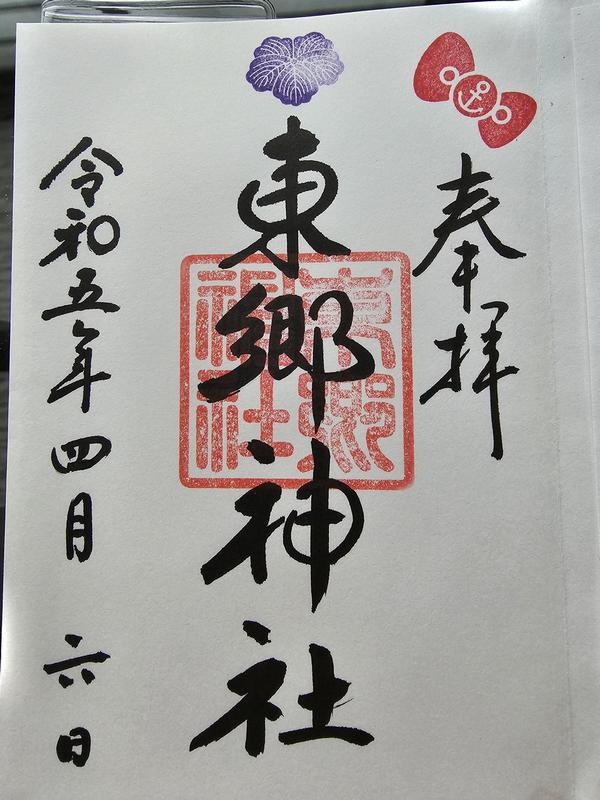 奉拝
東郷神社
東郷神社
令和五年四月六日